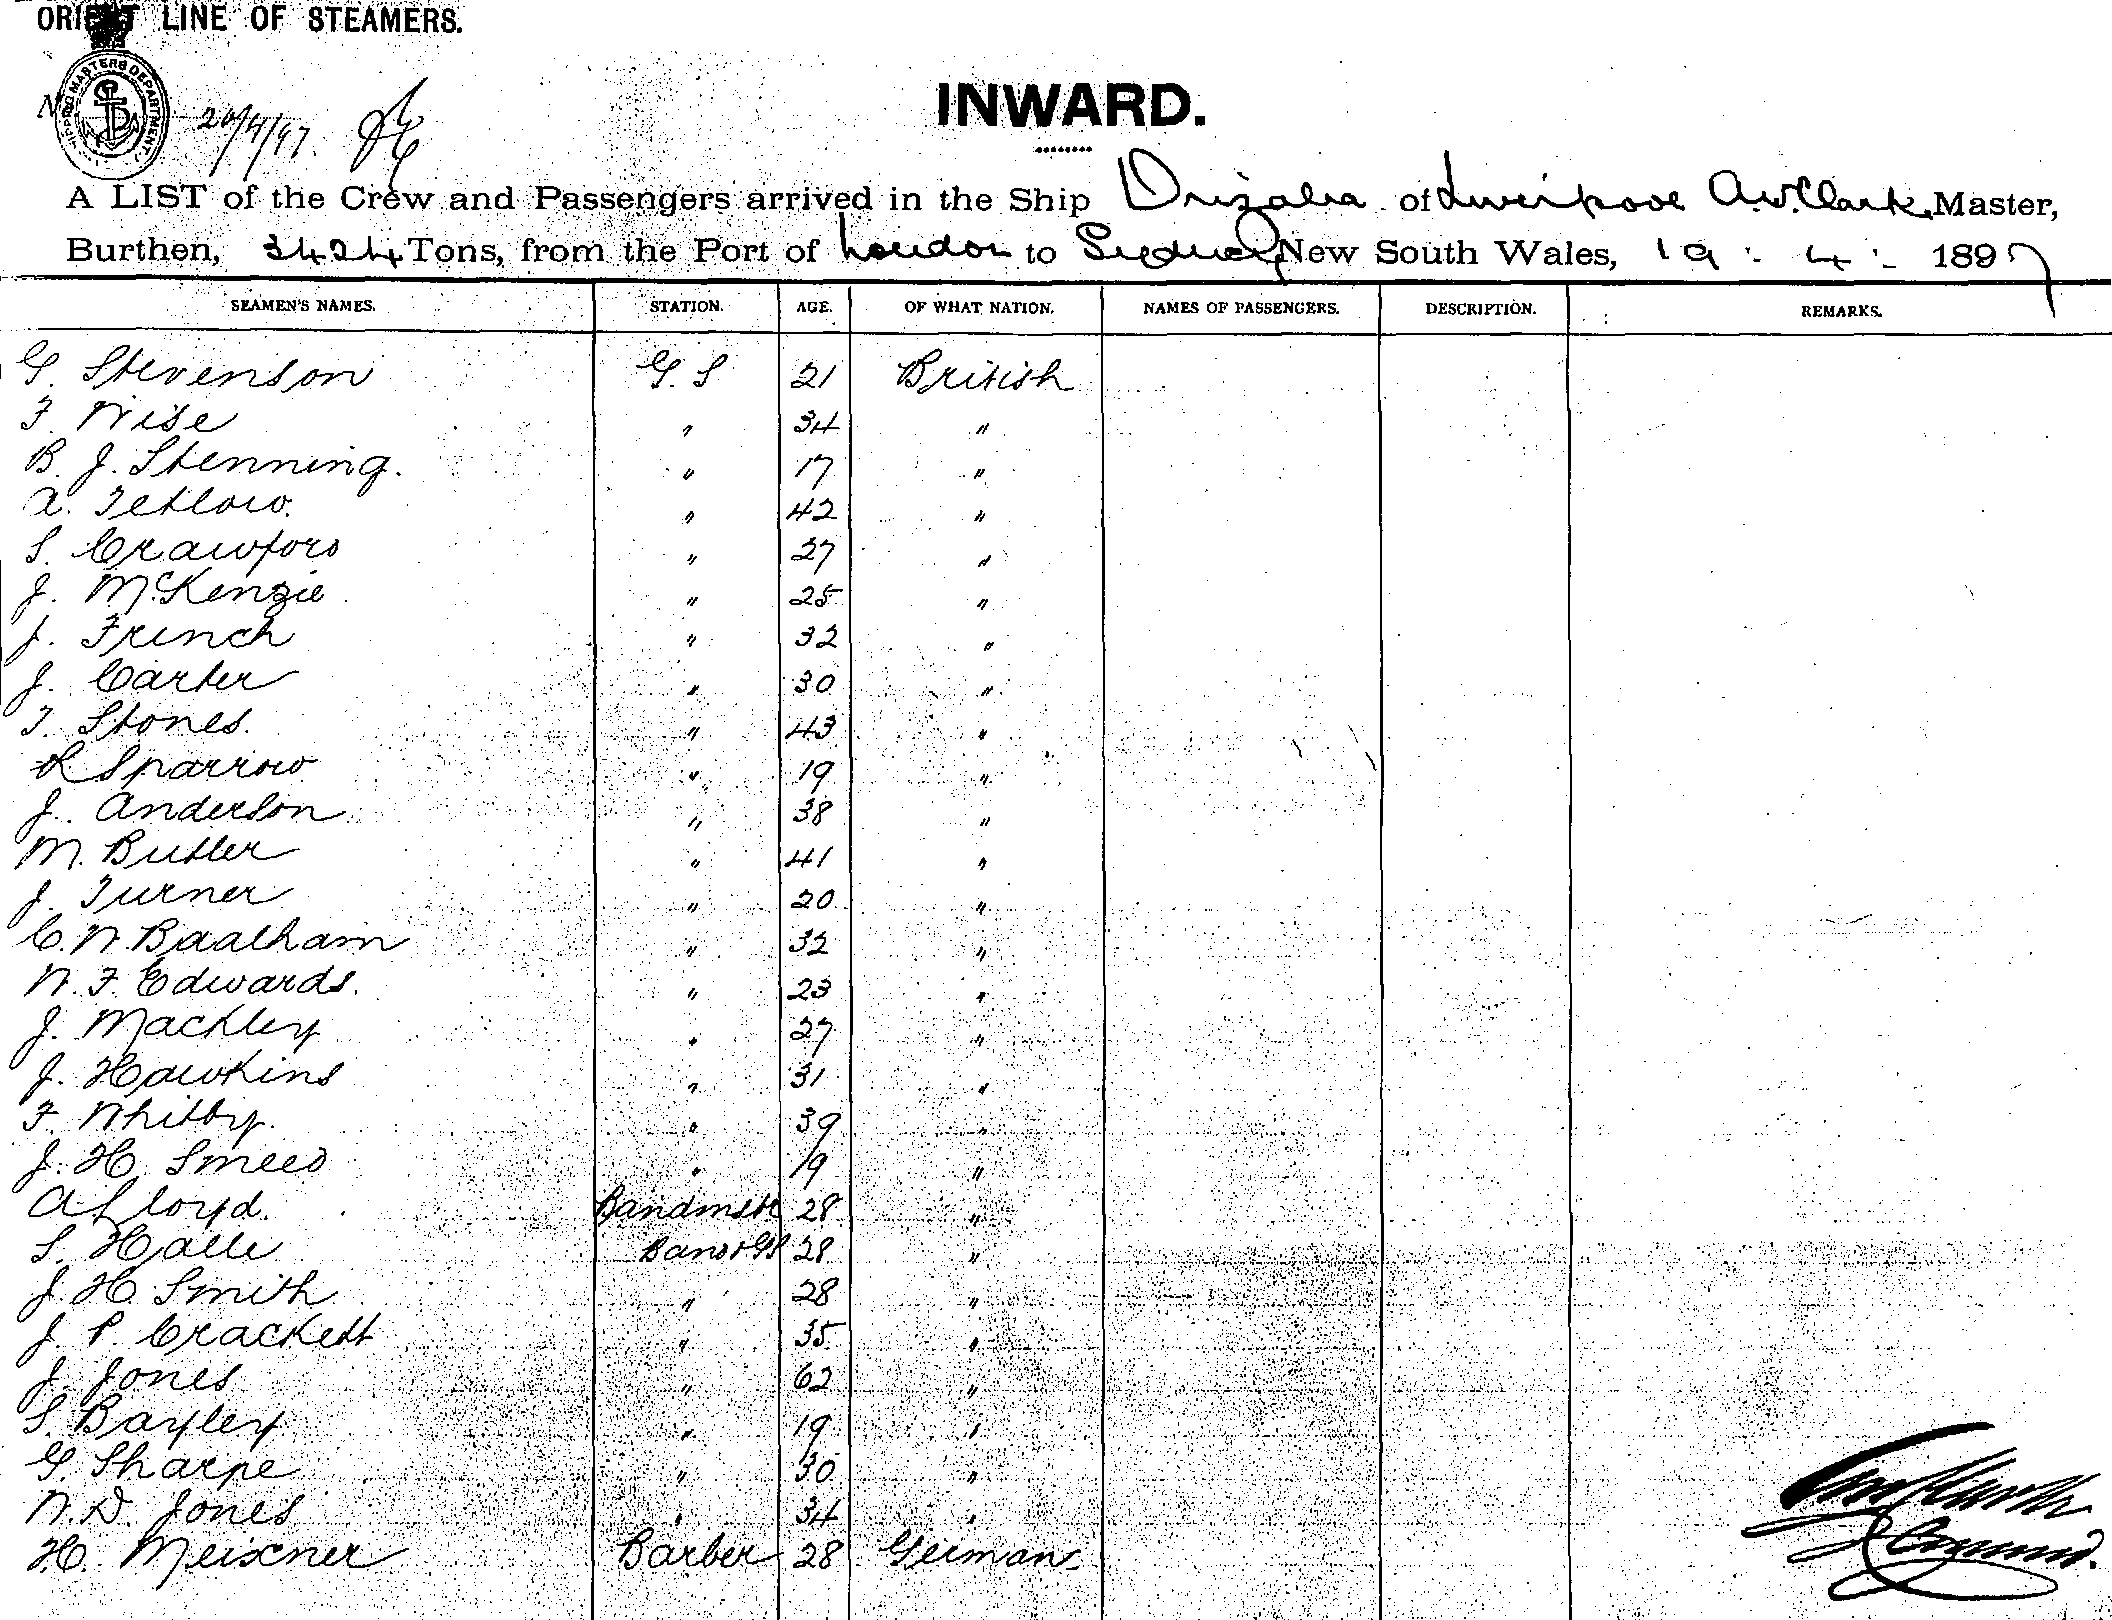 ORIENT LINE OF STEAMERS.
SHIPPING MASTERS DEPARTMENT
20/4/97.
INWARD.
A LIST of the Crew and Passengers arrived in the Ship Orizaba of Liverpool A.W. Clark, Master,
Burthen, 3424 Tons, from the Port of London to Sydney New South Wales, 19 : 4 : 1897
SEAMEN'S NAMES. STATION. AGE. OF WHAT NATION. NAMES OF PASSENGERS. DESCRIPTION. REMARKS.
G. Stevenson G. S 21 British
F. Wise " 34 "
B. J. Stenning. " 17 "
A. Tetlow. " 42 "
S. Crawford " 27 "
J. McKenzie " 25 "
J. French " 32 "
J. Carter " 30 "
T. Stones. " 43 "
Sparrow " 19 "
J. Anderson " 38 "
M. Butler " 41 "
J. Turner " 20 "
C. W. Baalham " 32 "
W. F. Edwards. " 23 "
J. Mackley " 27 "
J. Hawkins " 31 "
F. Whitby. " 39 "
J. H. Smeed " 19 "
A Lloyd. Bandmstr 28 "
S. Halle Band & GS 28 "
J. H. Smith " 28 "
J. P. Crackett " 35 "
J. Jones " 62 "
S. Bayley " 19 "
G. Sharpe " 30 "
W. D. Jones " 34 "
H. Meixner Barber 28 German